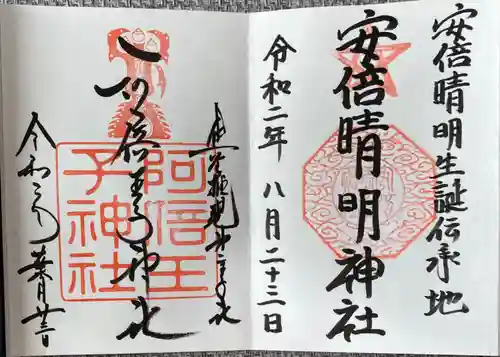 安倍晴明生誕伝承地
安倍晴明神社
令和二年 八月二十三日
阿倍王子神社
阿倍王
子神社
令和二年 葉月廿三